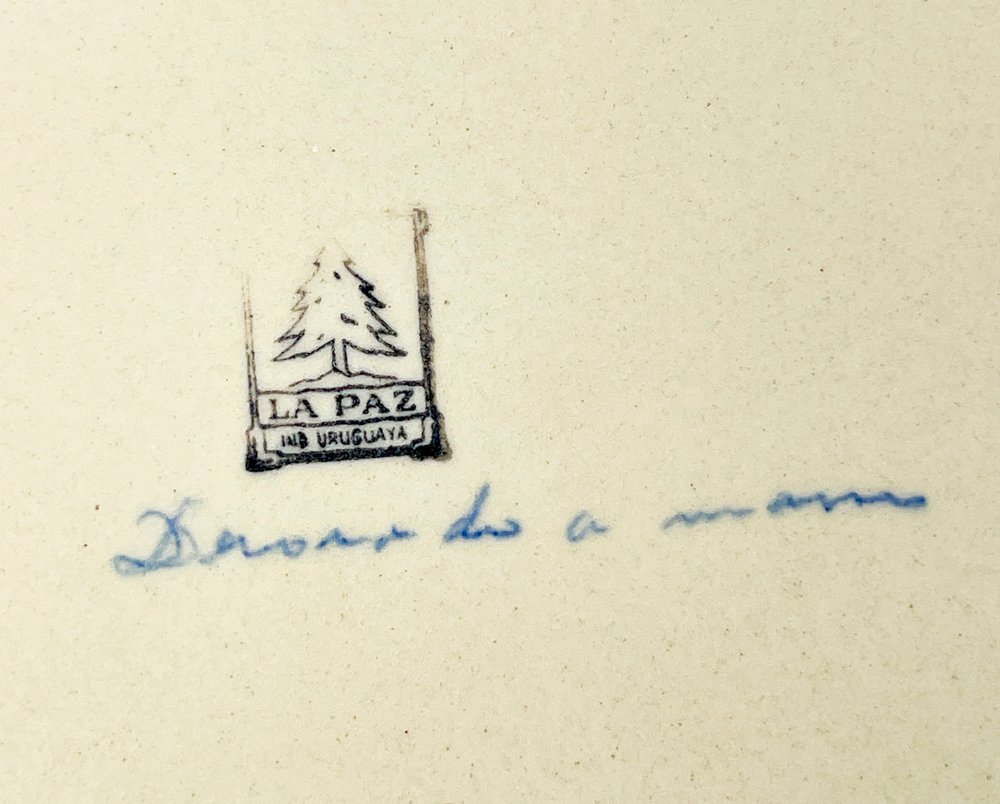 LA PAZ
IND URUGUAYA
Decorado a mano